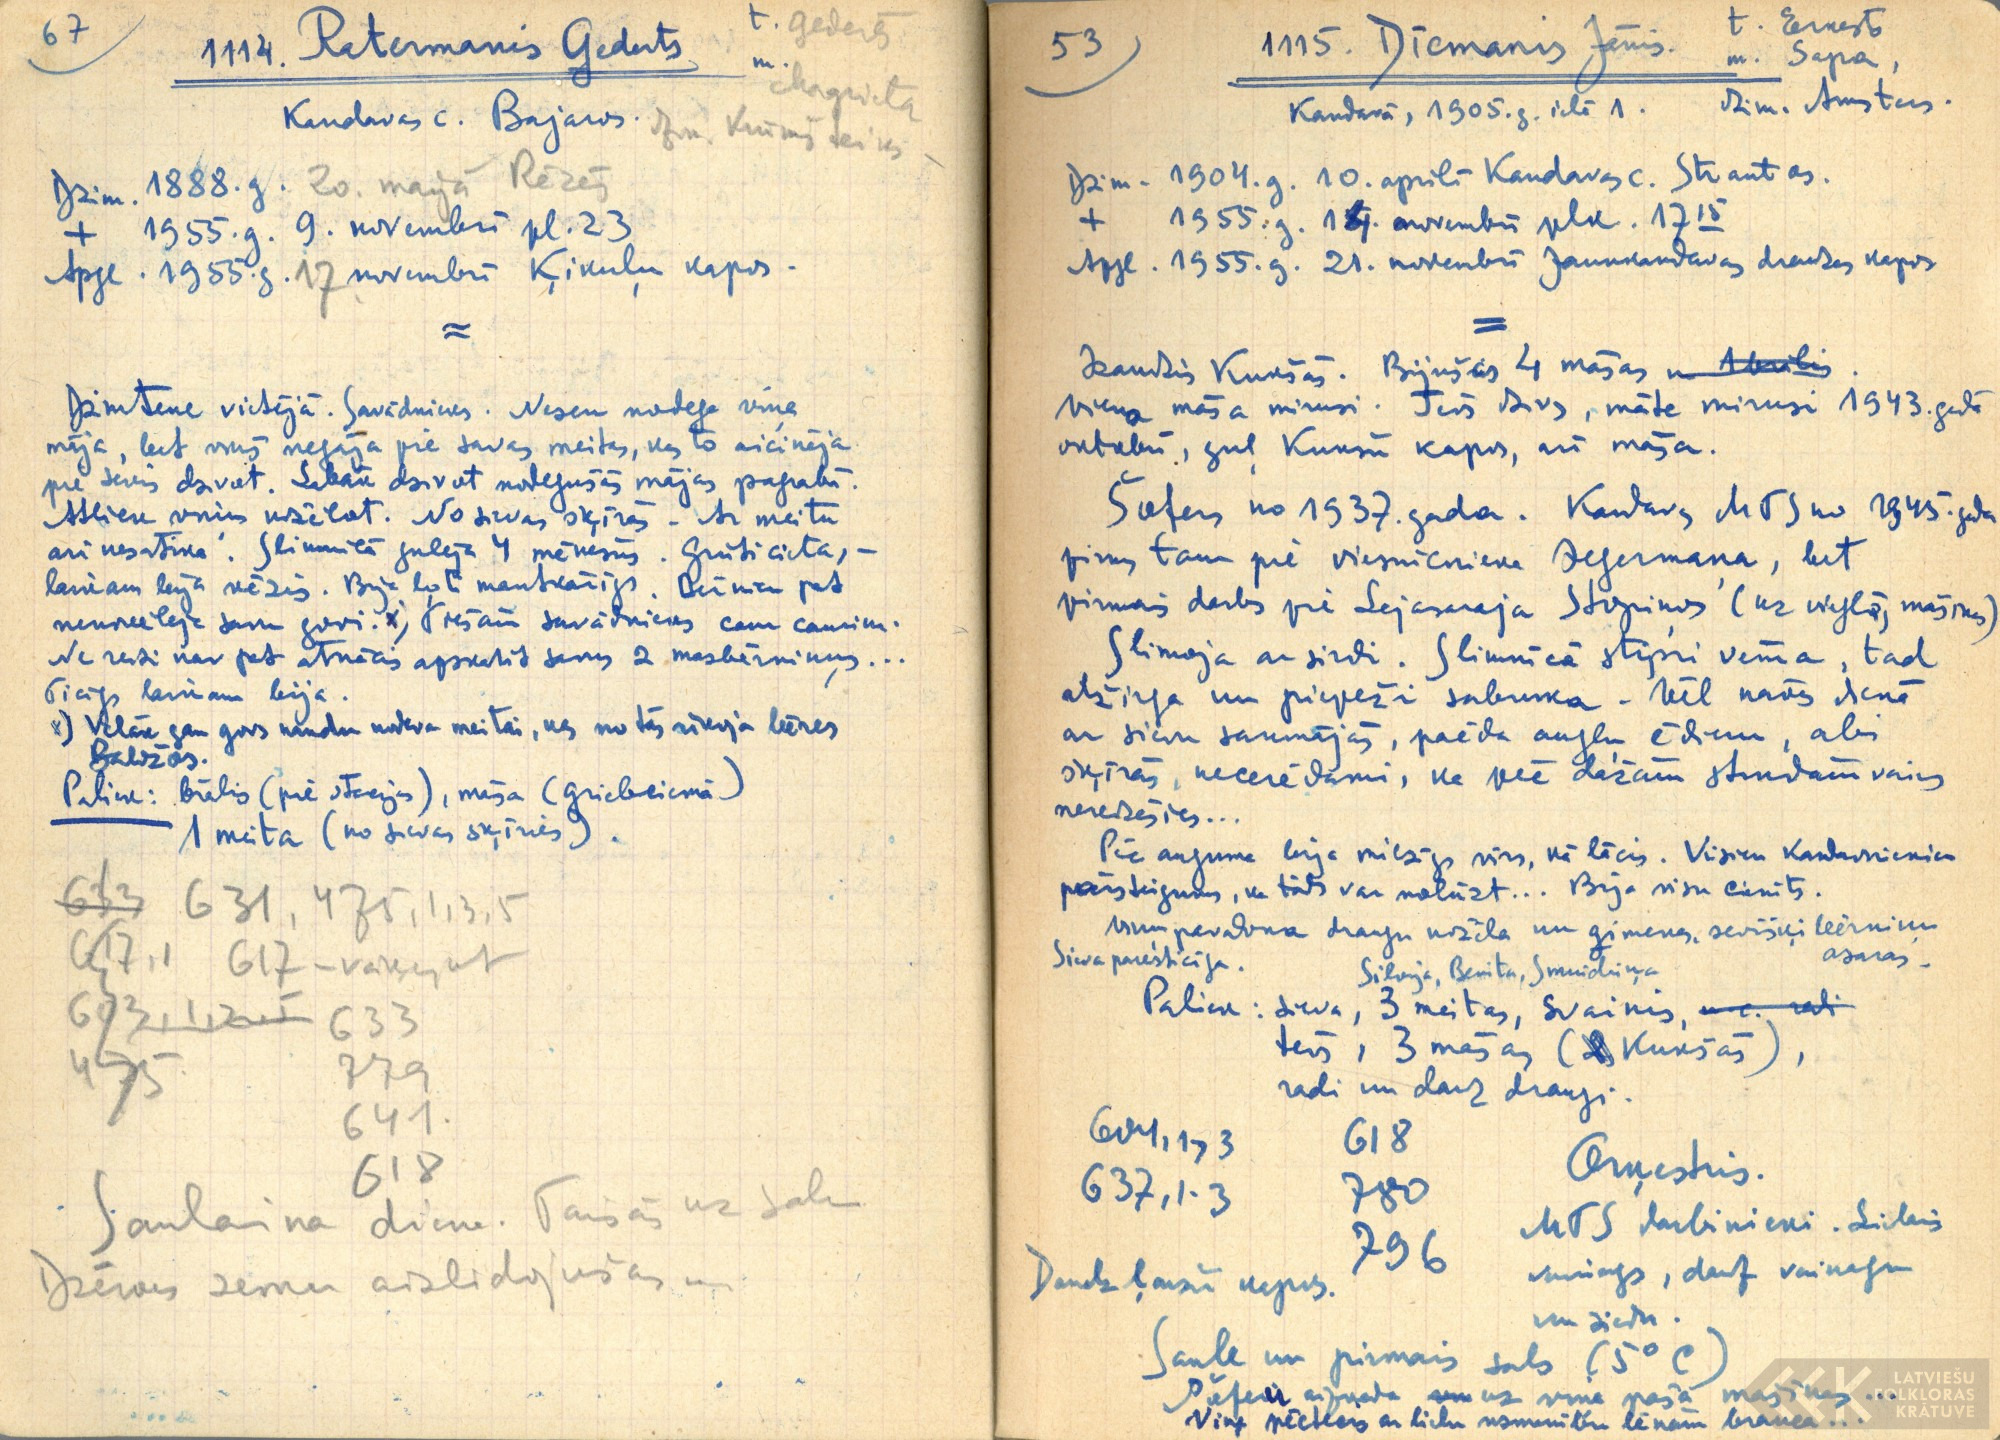 67
1114. Ratermanis Gederts
t. Gederts
m. Margrieta
dzim. Krūmšteiks
Kandavas c. Bajāros.
Dzim. 1888.g. 20. maijā Rēzēs
+ 1955.g. 9. novembrī pl. 23
Apgl. 1955.g. 17 novembrī Ķikuļu kapos.
≈
Dzimtene vietējā. Savādnieks. Nesen nodega viņa
māja, bet viņš negāja pie savas meitas, kas to aicināja
pie sevis dzīvot. Labāk dzīvot nodegušās mājas pagrabā.
Atliek viņu nožēlot. No sievas šķīrās – Ar meitu
arī nesatika. Slimnīcā gulēja 4 mēnešus. Grūti cieta, –
laikam bija vēzis. Bija ļoti mantkārīgs. Bērnam pat
nenovēlēja savu govi. x) Tiešām savādnieks cam caurim.
Ne reizi nav pat atnācis apskatīt savus 2 mazbērniņus...
Ticīgs laikam bija.
x) Vēlāk gan govs naudu nodeva meitai, kas no tās rīkoja bēres
Baložos.
Paliek: brālis (pie stacijas), māsa (Grieblciemā)
1 meita (no sievas šķīries).
633 631, 475,1,3,5
617,1 617 – vākojot
603,1,2 633
475 779
641.
618
Saulaina diena. Taisās uz salu
Dzērves senu aizlidojušas
53
1115. Dīcmanis Jānis.
t. Ernests
m. Sapa,
dzim. Amsters.
Kandavā, 1905.g. ielā 1.
Dzim. 1904.g. 10. aprīlī Kandavas c. Strautos.
+ 1955.g. 14. novembrī plk. 17 15
Apgl. 1955.g. 21. novembrī Jaunkandavas draudzes kapos
=
Izaudzis Kukšās. Bijušas 4 māsas un 1 brālis.
Viena māsa mirusi. Tēvs dzīvs, māte mirusi 1943. gadā
oktobrī, guļ Kukšu kapos, arī māsa.
Šofers no 1937. gada. Kandavas MTS no 1945. gada
pirms tam pie viesnīcnieka Segermaņa, bet
pirmais darbs pie Lejasaraja Stopiņos (uz vieglās mašīnas)
Slimoja ar sirdi. Slimnīcā stipri vēma, tad
atžirga un piepeži sabruka – Vēl nāves dienā
ar sievu sarunājās, paēda augļu ēdienu, abi
šķīrās, necerēdami, ka pēc dažām stundām vairs
neredzēsies...
Pēc auguma bija milzīgs vīrs, kā lācis. Visiem Kandavniekiem
pārsteigums, ka tāds var nolūzt... Bija visu cienīts.
Viņu pavadona draugu nožēla un ģimenes, sevišķi bērniņu
asaras.
Sieva pareizticīga.
Silvija, Benita, Smuidriņa
Paliek: sieva, 3 meitas, svainis, un c. radi
tēvs, 3 māsas (Kukšās),
radi un daudz draugi.
604,1,3 618
637,1-3 780
796
Orķestris.
MTS darbinieki. Lielais
vainags, daudz vainagu
un ziedu.
Daudz ļaužu kapos.
Saule un pirmais sals (5° C)
Šoferi aizvada uz viņa pašā mašīnas...
Viņa pēctecis ar lielu uzmanību lēnām brauca...
LATVIEŠU
FOLKLORAS
KRĀTUVE